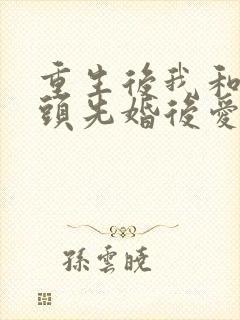 重生後我和
頭先婚後愛
孫雲曉